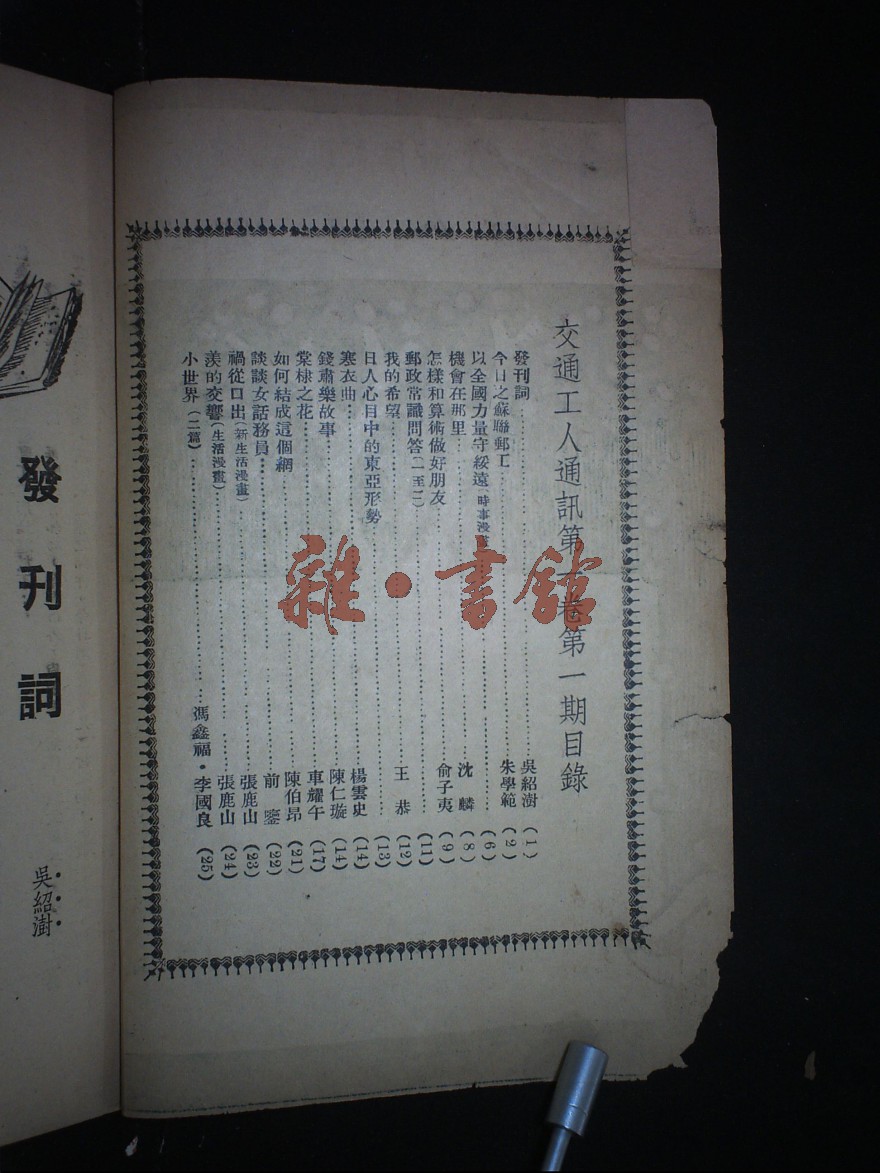 交通工人通訊第一卷第一期目錄
發刊詞 吳紹澍 (1)
今日之蘇聯郵工 朱學範 (2)
以全國力量守綏遠(時事漫畫) (6)
機會在那里 沈麟 (8)
怎樣和算術做好朋友 俞子夷 (9)
郵政常識問答(二至三) (11)
我的希望 王恭 (12)
日人心目中的東亞形勢 (13)
寒衣曲 楊雲史 (14)
錢肅樂故事 陳仁璇 (14)
棠棣之花 車耀午 (17)
如何結成這個網 陳伯昂 (21)
談談女話務員 前鑒 (22)
禍從口出(新生活漫畫) 張鹿山 (23)
羡的交響(生活漫畫) 張鹿山 (24)
小世界(二篇) 馮鑫福・李國良 (25)
雜・書館
發刊詞
吳紹澍